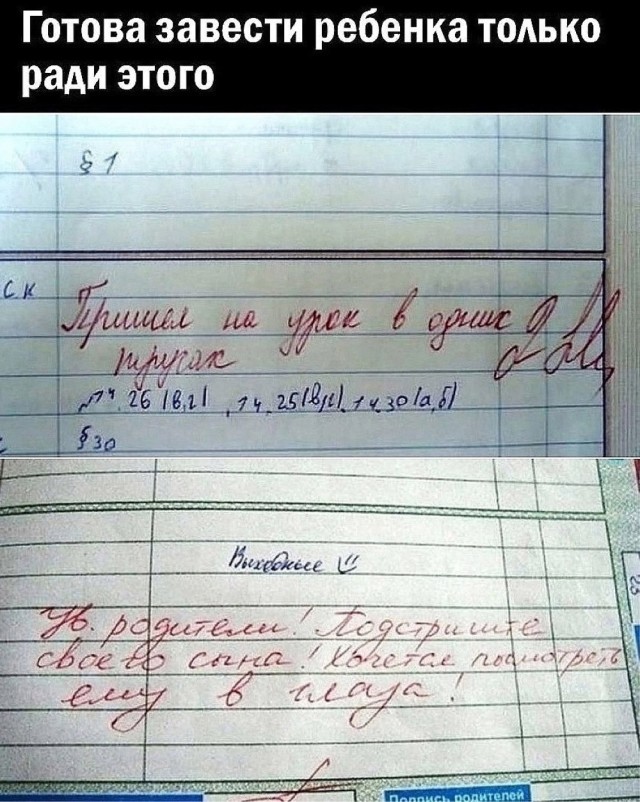 Готова завести ребенка только
ради этого
§ 1
С К
Пришел на урок в одних
трусах
№ 14. 26 (в,г), 14. 25(в,г), 14.30(а,б)
§ 30
Выходные
Ув. родители! Подстригите
своего сына! Хочется посмотреть
ему в глаза!
23
Подпись родителей